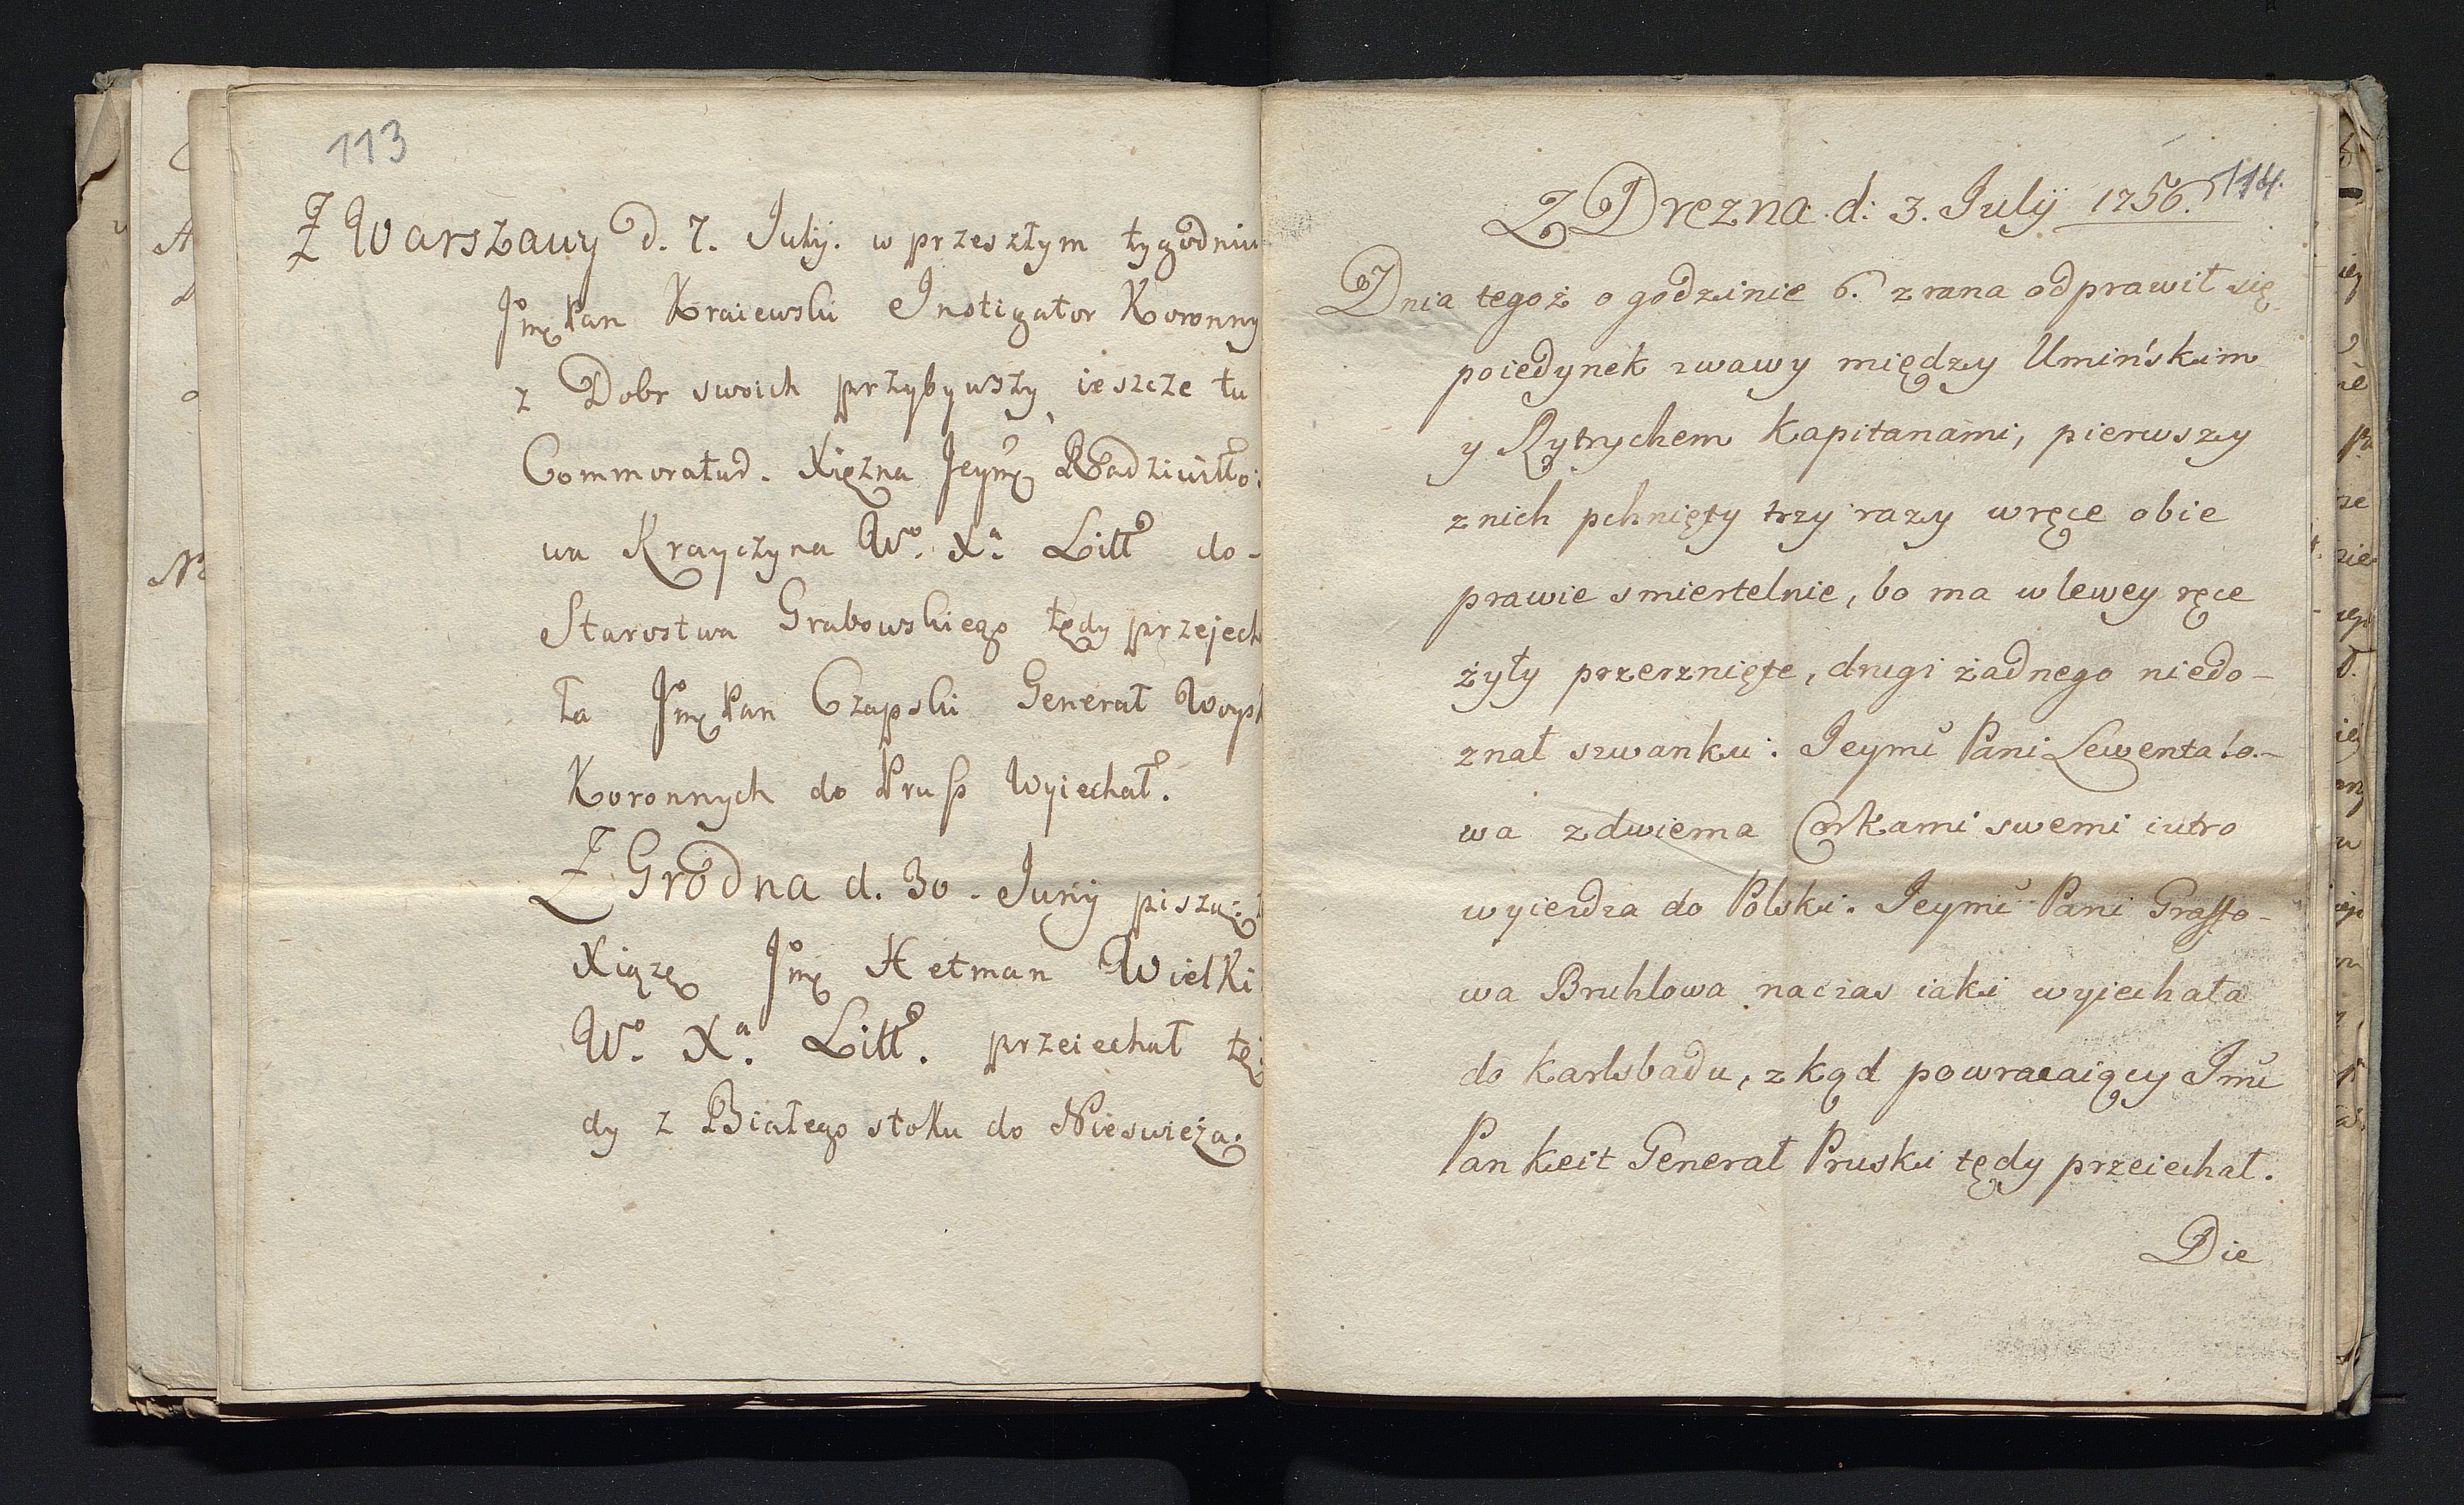 113
Z Warszawy d. 7. July. w przeszłym tygodniu
Jmę Pan Kraiewski Instigator Koronny
z Dobr swoich przybywszy ieszcze tu
Commoratud. Xięzna Jeymę Radziwiłło:
wa Krayczyna Wº. Xª. Litt do-
Starostwa Grabowskiego tędy przejech
ła Jmę Pan Czapski Generał Woysk
Koronnych do Pruß Wyiechał.
Z Grodna d. 30. Juny piszą:
Xiązę Jmę Hetman Wielki
Wº. Xª. Litt. przeiechał tę:
dy z Białegostoku do Nieswieża.
114.
Z Drezna d: 3. July 1756.
Dnia tegoż o godzinie 6. zrana odprawił się
poiedynek zwawy między Umińskim
y Rytrychem Kapitanami, pierwszy
znich pchnięty trzy razy wręce obie
prawie smiertelnie, bo ma wlewey ręce
żyły przerznięte, drugi żadnego niedo-
znał szwanku. Jeymć Pani Lewentalo-
wa zdwiema Corkami swemi iutro
wyiezdza do Polski. Jeymć Pani Graffo-
wa Bruhlowa naczas iaki wyiechała
do Karlsbadu, zkąd powracaiący Jmć
Pan Keit Generał Pruski tędy przeiechał.
Die